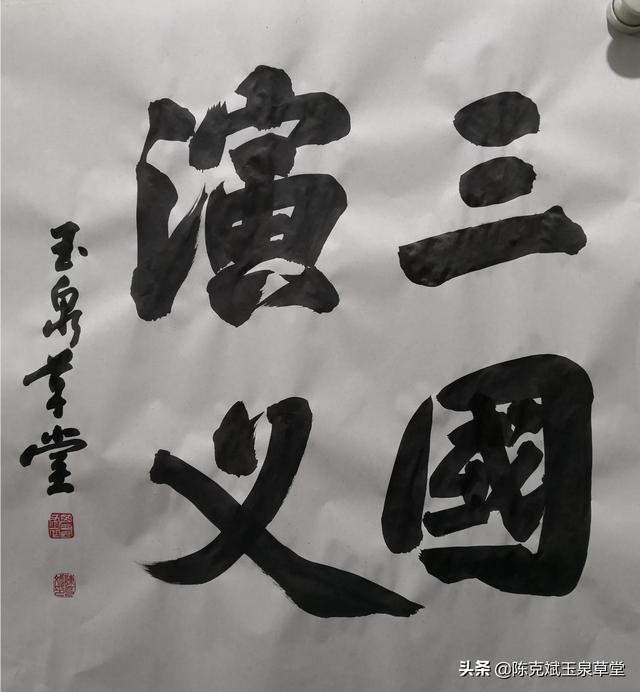 三國
演义
玉泉草堂
头条 @陈克斌玉泉草堂